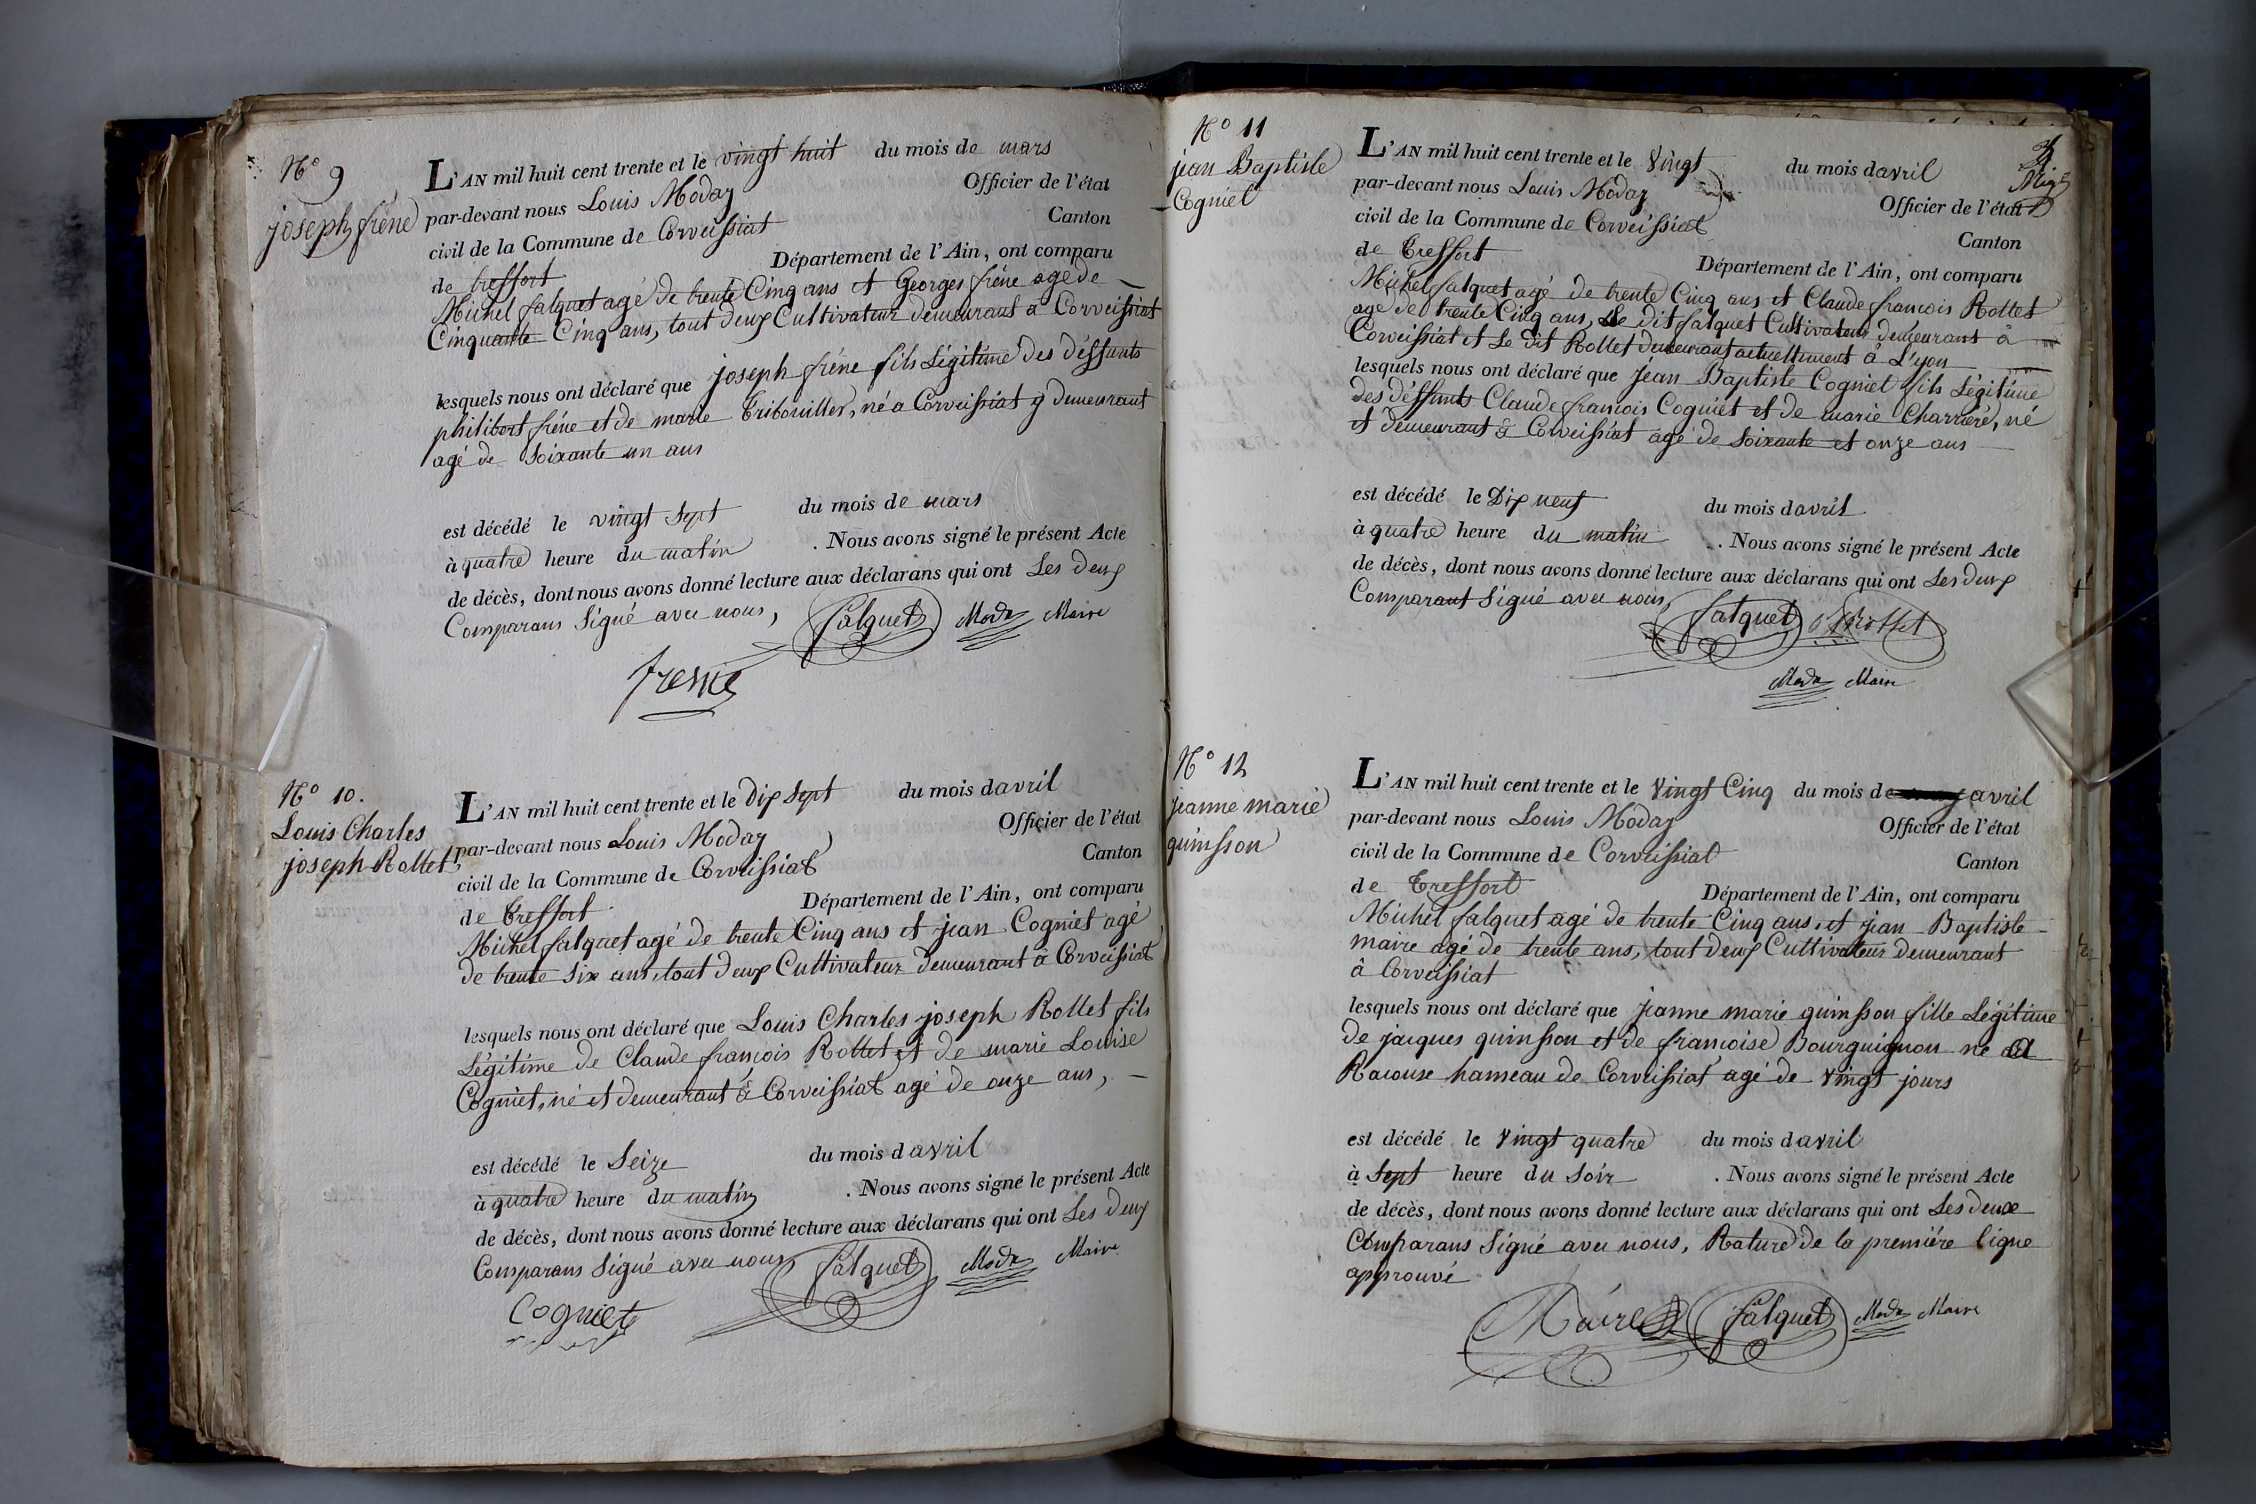 N° 9
joseph fréne
L'AN mil huit cent trente et le vingt huit du mois de mars
par-devant nous Louis Moday Officier de l'état
civil de la Commune de Corveissiat Canton
de treffort Département de l'Ain, ont comparu
Michel falquet agé de trente Cinq ans et Georges fréne agé de
Cinquante Cinq ans, tout deux Cultivateur demeurant a Corveissiat
lesquels nous ont déclaré que joseph fréne fils Légitime des déffunts
philibert fréne et de marie Tribouillet, né a Corveissiat y demeurant
agé de Soixante un ans
est décédé le vingt Sept du mois de mars
à quatre heure du matin . Nous avons signé le présent Acte
de décès, dont nous avons donné lecture aux déclarans qui ont Les deux
Comparans Signé avec nous, falquet Moda Maire
fresne
N° 10.
Louis Charles
joseph Rollet
L'AN mil huit cent trente et le Dix Sept du mois d avril
par-devant nous Louis Moday Officier de l'état
civil de la Commune de Corveissiat Canton
de Treffort Département de l'Ain, ont comparu
Michel falquet agé de trente Cinq ans et jean Cogniet agé
de trente Six ans, tout deux Cultivateur demeurant a Corveissiat
lesquels nous ont déclaré que Louis Charles joseph Rollet fils
Légitime de Claude françois Rollet et de marie Louise
Cogniet, né et demeurant à Corveissiat agé de onze ans,
est décédé le Seize du mois d avril
à quatre heure du matin . Nous avons signé le présent Acte
de décès, dont nous avons donné lecture aux déclarans qui ont Les deux
Comparans Signé avec nous falquet Moda Maire
Cogniet
N° 11
jean Baptiste
Cogniet
L'AN mil huit cent trente et le Vingt du mois d avril
par-devant nous Louis Moday Officier de l'état
civil de la Commune de Corveissiat Canton
de Treffort Département de l'Ain, ont comparu
Michel falquet agé de trente Cinq ans et Claude françois Rollet
agé de trente Cinq ans, Le dit falquet Cultivateur demeurant à
Corveissiat et Le dit Rollet demeurant actuellement à L'yon
lesquels nous ont déclaré que Jean Baptiste Cogniet fils Légitime
des déffunts Claude françois Cogniet et de marie Charriere, né
et demeurant à Corveissiat agé de Soixante et onze ans
est décédé le Dix neuf du mois d avril
à quatre heure du matin . Nous avons signé le présent Acte
de décès, dont nous avons donné lecture aux déclarans qui ont Les deux
Comparant Signé avec nous, falquet Rollet
Moda Maire
N° 12
jeanne marie
quinsson
L'AN mil huit cent trente et le Vingt Cinq du mois d avril
par-devant nous Louis Moday Officier de l'état
civil de la Commune de Corveissiat Canton
de Treffort Département de l'Ain, ont comparu
Michel falquet agé de trente Cinq ans, et jean Baptiste
maire agé de trente ans, tout deux Cultivateur demeurant
à Corveissiat
lesquels nous ont déclaré que jeanne marie quinsson fille Légitime
de jacques quinsson et de françoise Bourguignon né a
Racouse hameau de Corveissiat agé de vingt jours
est décédé le vingt quatre du mois d avril
à Sept heure du Soir . Nous avons signé le présent Acte
de décès, dont nous avons donné lecture aux déclarans qui ont Les deux
Comparans Signé avec nous, Rature de la première ligne
approuvé
Maire falquet Moda Maire